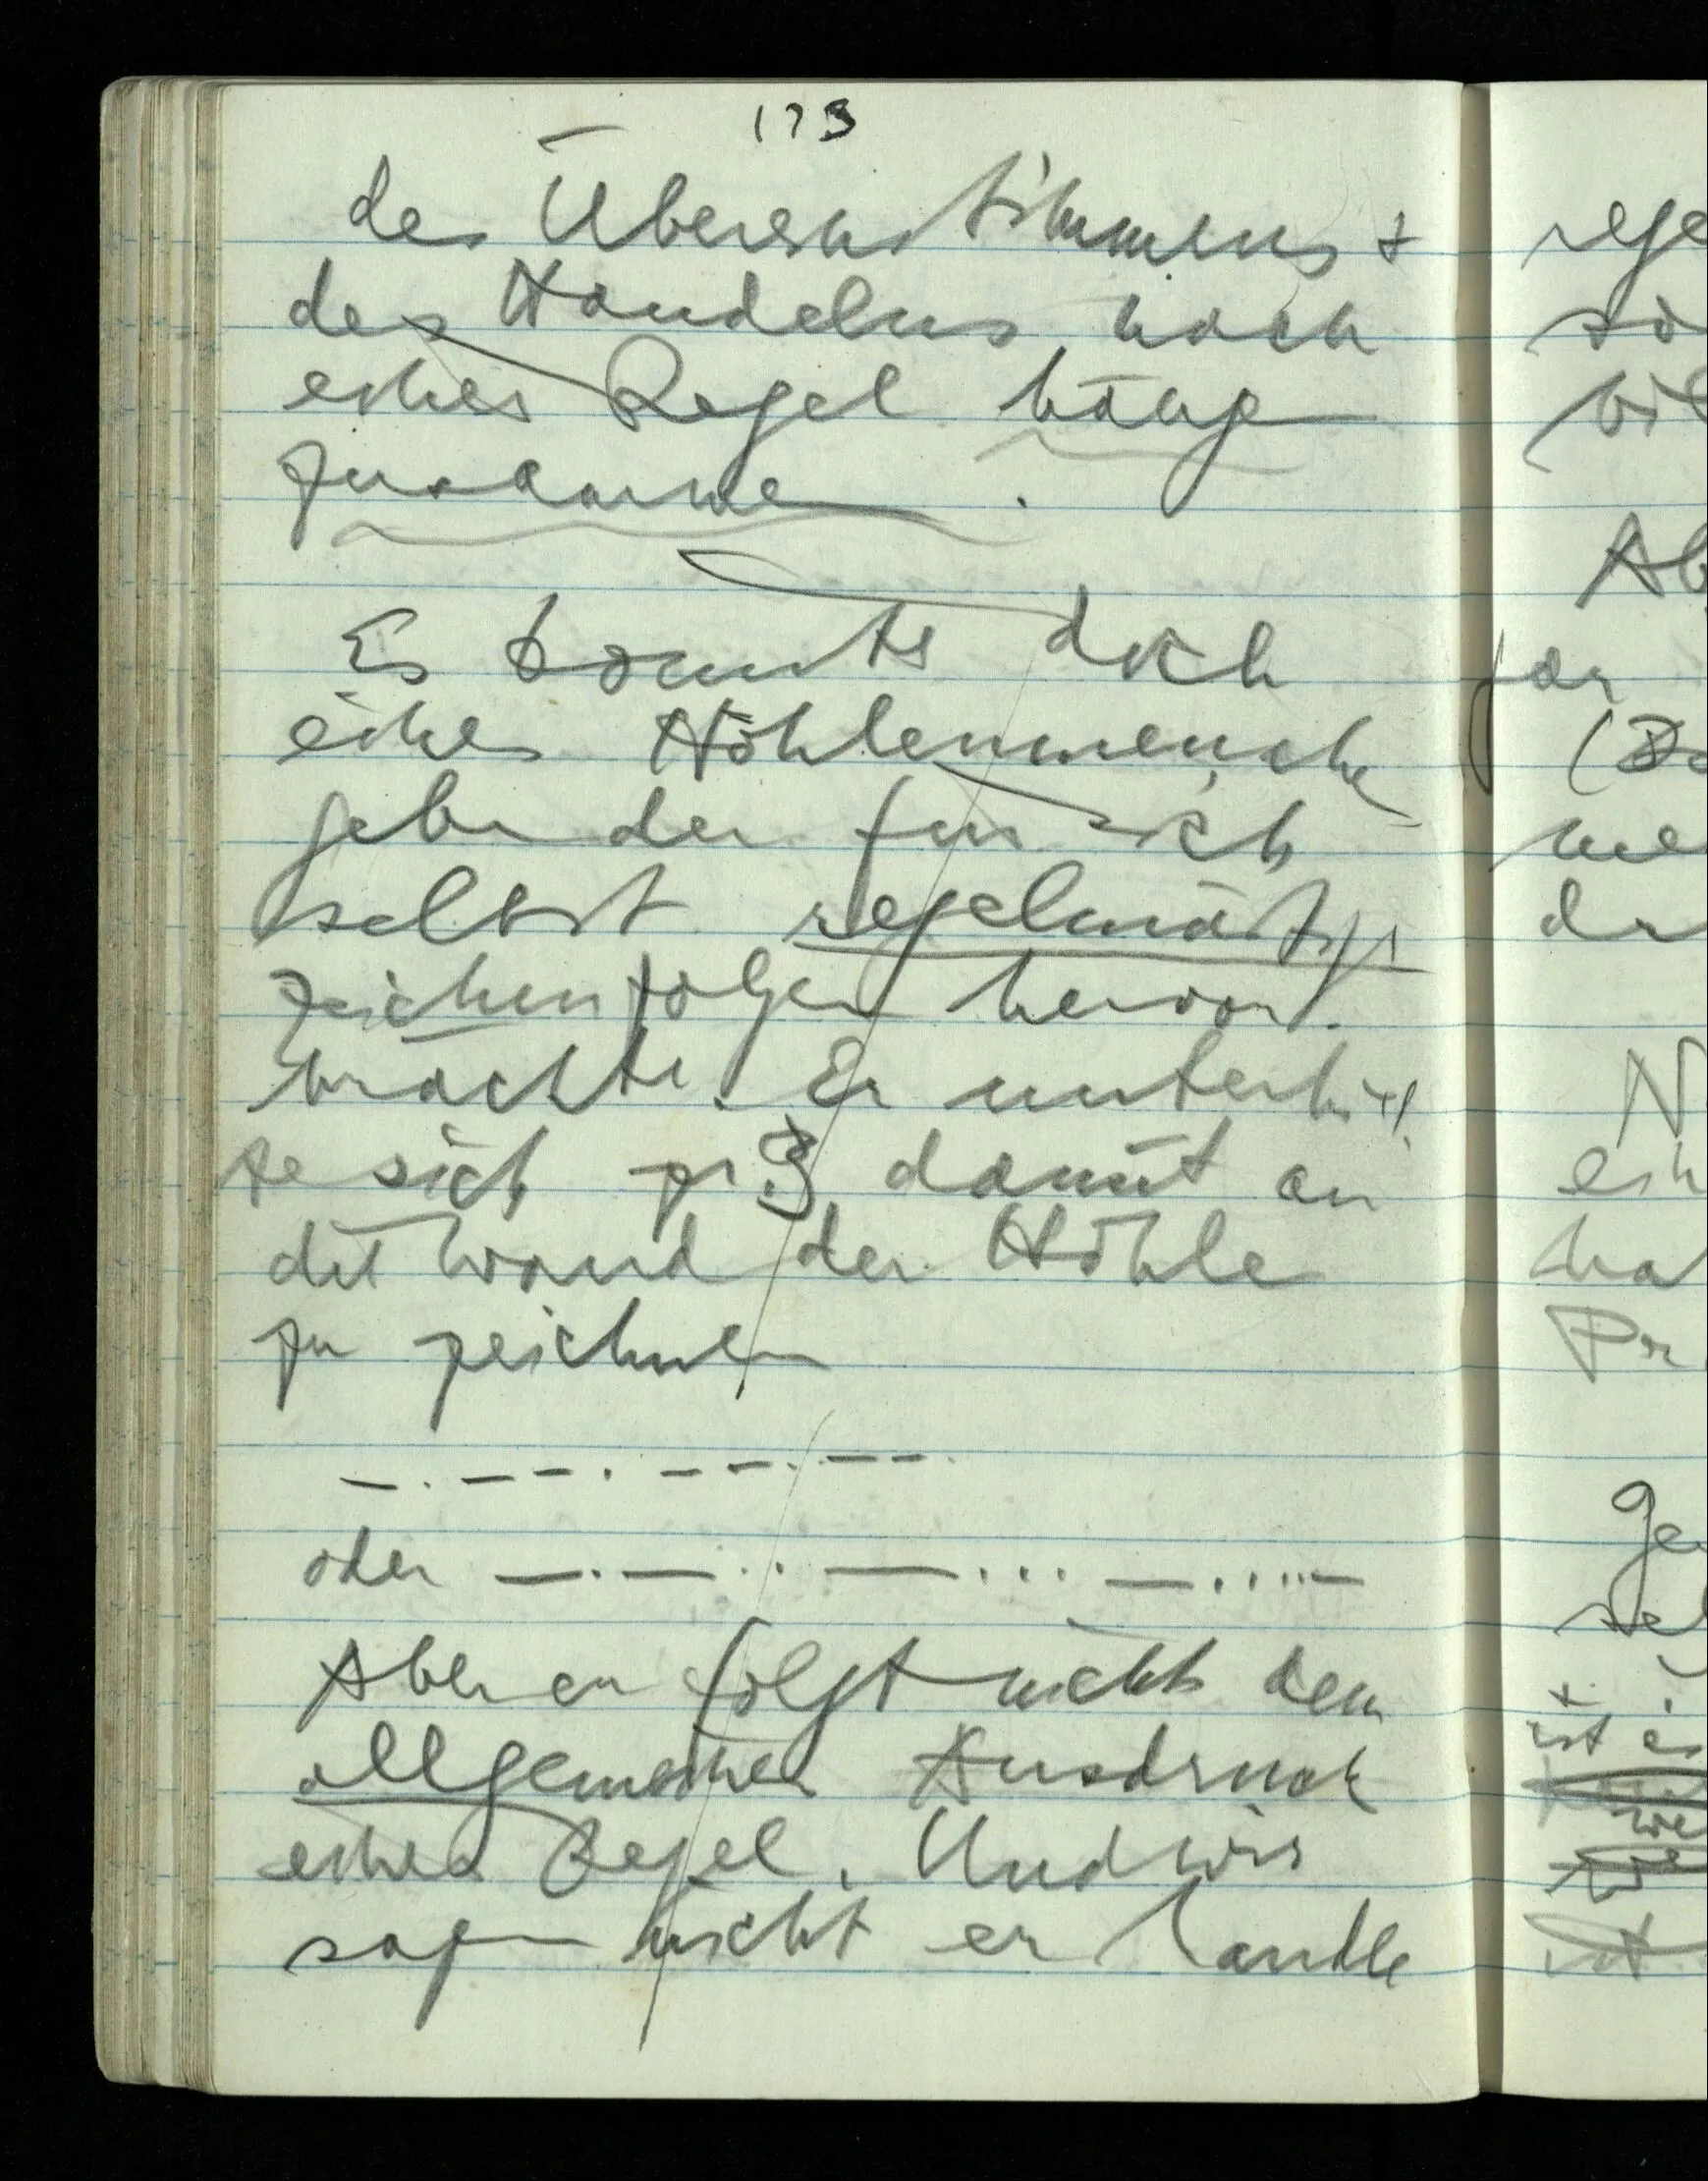 173
des Übereinstimmens &
des Handelns nach
einer Regel hängen
zusammen.
Es könnte doch
einen Höhlenmenschen
geben der für sich
selbst regelmäßige
Zeichenfolgen hervor-
brächte. Er unterhiel-
te sich z.B. damit an
die Wand der Höhle
zu zeichnen
– . – – . – – . – – .
oder – . – . . – . . . – . . . . –
Aber er folgt nicht dem
allgemeinen Ausdruck
einer Regel. Und wir
sagen nicht er handle